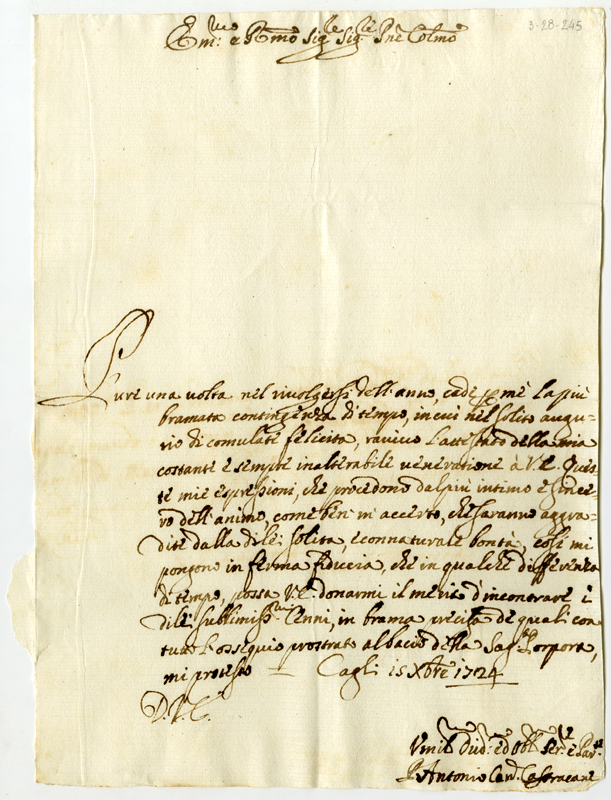 3-28-245
Em:mo e Rmo Sigre Sigre Pne Colmo
Pure una volta nel rivolgersi dell'anno, cade per me la più
bramata contingenza di tempo, in cui nel solito augu=
rio di comulate felicità, ravivo l'attestato della mia
costante e sempre inalterabile veneratione à V.E. Ques=
te mie espressioni, che procedono dal più intimo e since=
ro dell'animo, come ben m'accerto, che saranno aggra=
dite dalla di lei solita, e connaturale bontà, così mi
pongono in ferma fiducia, che in qualche differenza
di tempo, possa V.E. donarmi il merito d'incontrare i
di lei sublimiss:mi Cenni, in brama precisa de quali con
tutto l'ossequio prostrato al bacio della Sag:ta Porpora,
mi protesto Cagli 15 Xbre 1724
D.V.E.
Umil: Div: ed Obl: Ser:e
P. Antonio Card.